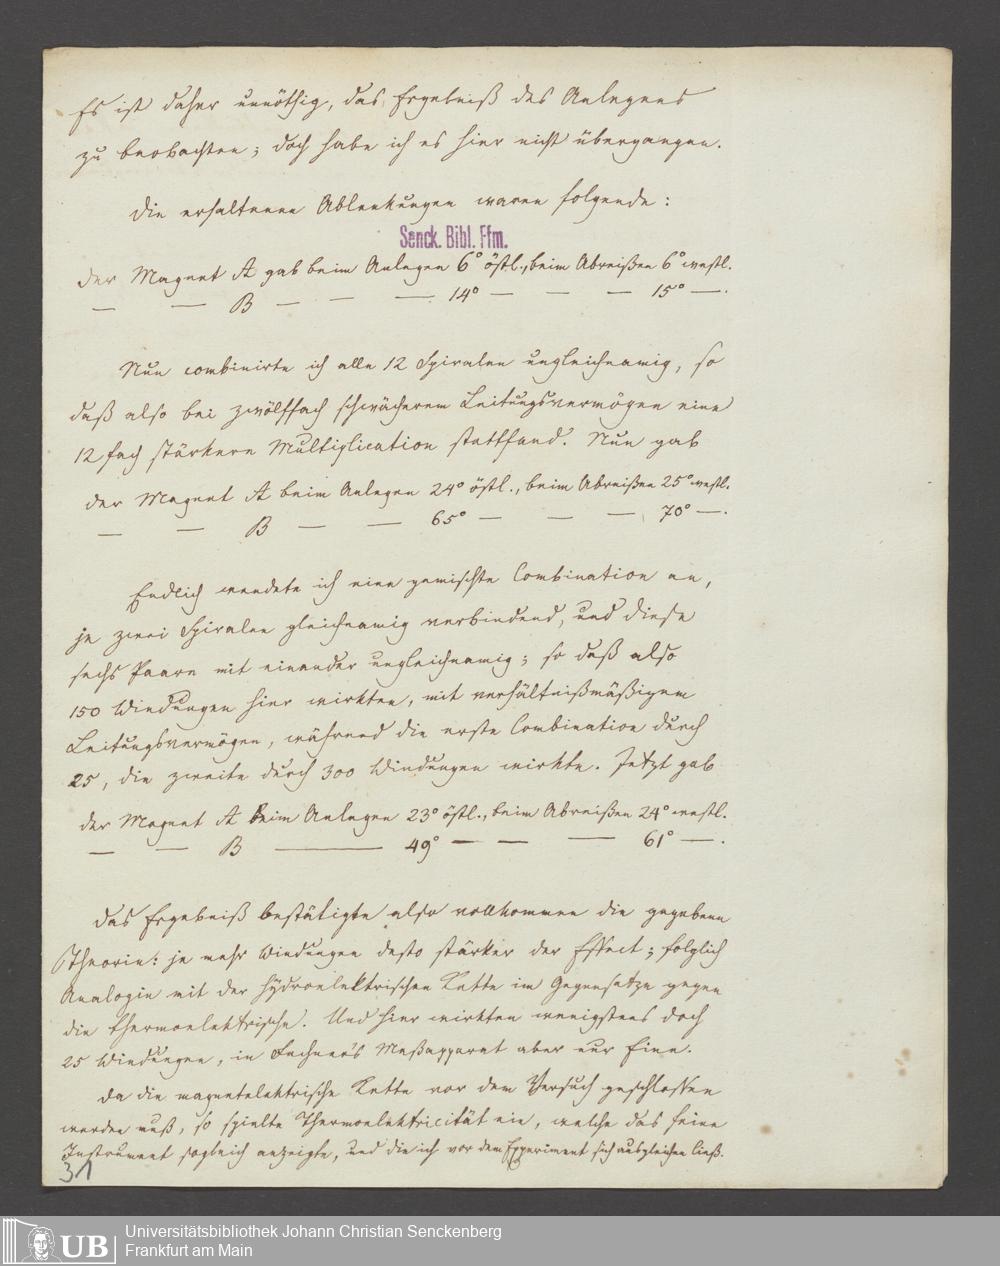 Es ist daher unnöthig, das Ergebniß des Anlegens
zu beobachten; doch habe ich es hier nicht übergangen.
Die erhaltenen Ablenkungen waren folgende:
Senck. Bibl. Ffm.
Der Magnet A gab beim Anlegen 6° östl., beim Abreißen 6° westl.
— — B — — — 14° — — — 15° —.
Nun combinirte ich alle 12 Spiralen ungleichnamig, so
daß also bei zwölffach schwächerem Leitungsvermögen eine
12 fach stärkere Multiplication stattfand. Nun gab
der Magnet A beim Anlegen 24° östl., beim Abreißen 25° westl.
— — B — — 65° — — — 70° —.
Endlich wendete ich eine gemischte Combination an,
je zwei Spiralen gleichnamig verbindend, und diese
sechs Paare mit einander ungleichnamig; so daß also
150 Windungen hier wirkten, mit verhältnißmäßigem
Leitungsvermögen, während die erste Combination durch
25, die zweite durch 300 Windungen wirkte. Jetzt gab
der Magnet A beim Anlegen 23° östl., beim Abreißen 24° westl.
— — B — 49° — — — 61° —.
Das Ergebniß bestätigte also vollkommen die gegebene
Theorie: je mehr Windungen desto stärker der Effect; folglich
Analogie mit der hydroelektrischen Kette im Gegensatze gegen
die thermoelektrische. Und hier wirkten wenigstens doch
25 Windungen, in Fechner's Meßapparat aber nur Eine.
Da die magnetelektrische Kette vor dem Versuch geschlossen
werden muß, so spielte Thermoelektricität ein, welche das feine
Instrument sogleich anzeigte, und die ich vor dem Experiment sich ausgleichen ließ.
31
UB
Universitätsbibliothek Johann Christian Senckenberg
Frankfurt am Main